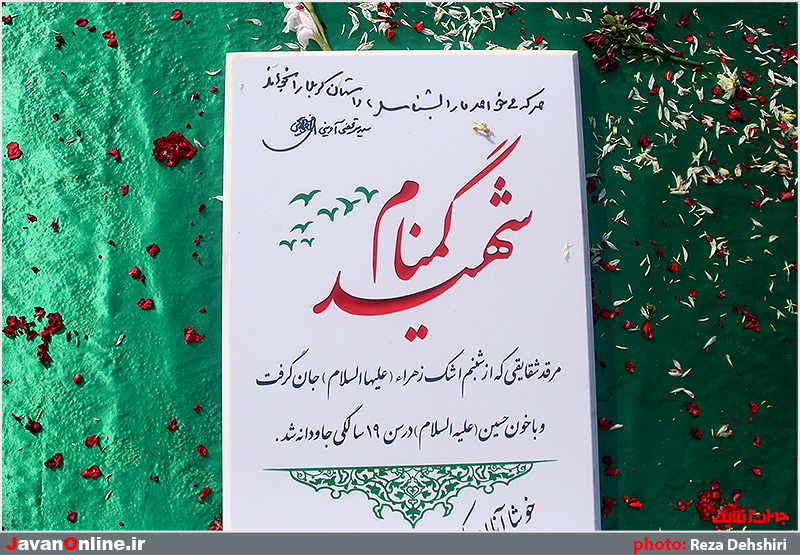 هرکه می‌خواهد ما را بشناسد، داستان کربلا را بخواند
سید مرتضی آوینی
شهید گمنام
مرقد شقایقی که از شبنم اشک زهراء (علیها السلام) جان گرفت
و با خون حسین (علیه السلام) در سن ۱۹ سالگی جاودانه شد.
خوشا آنان که
JavanOnline.ir
photo: Reza Dehshiri